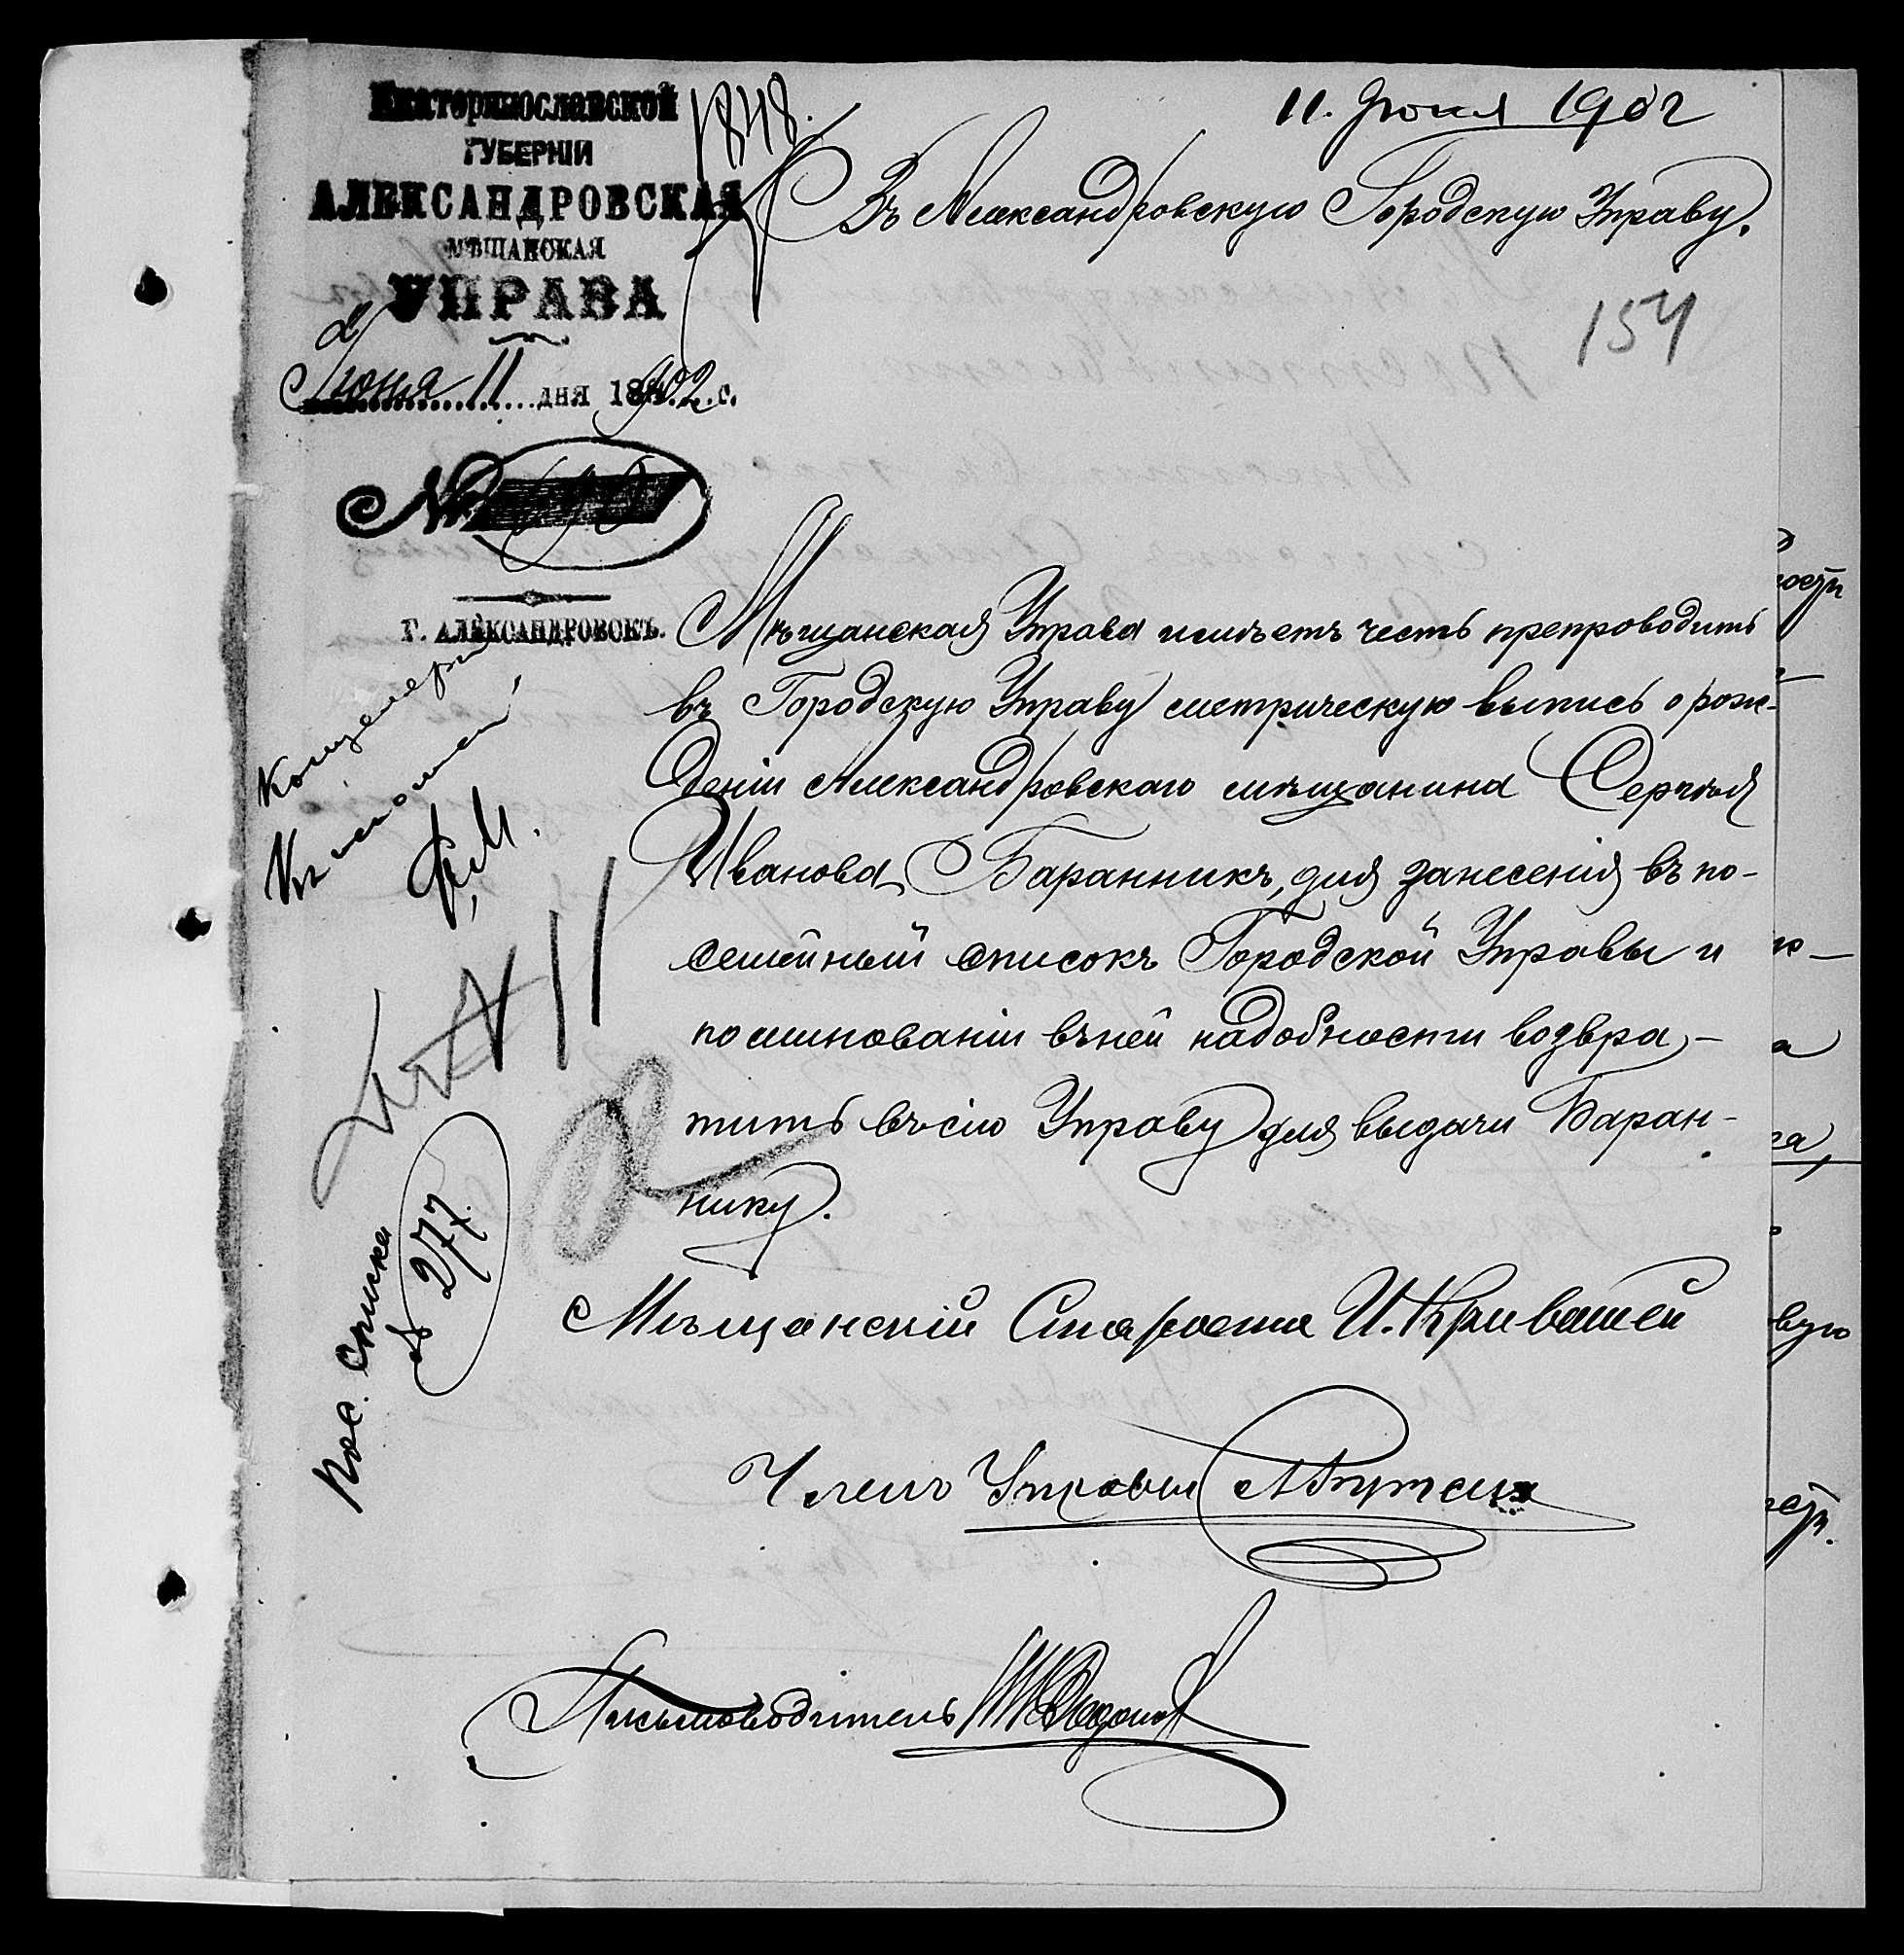 Екатеринославской
ГУБЕРНІИ
АЛЕКСАНДРОВСКАЯ
МѢЩАНСКАЯ
УПРАВА
Іюня 11 дня 1902 г.
№
Г. АЛЕКСАНДРОВСКЪ.
1848.
11. Іюня 1902
Въ Александровскую Городскую Управу.
154
Мѣщанская Управа имѣетъ честь препроводить
въ Городскую Управу метрическую выпись о рож-
деніи Александровскаго мѣщанина Сергѣя
Иванова Баранникъ, для занесенія въ по-
семейный списокъ Городской Управы и
по минованіи въ ней надобности возвра-
тить въ сію Управу для выдачи Баран-
нику.
Мѣщанскій Староста И. Кривошей
Членъ Управы
Письмоводитель
Къ исполненію
11
Пос. списка
№ 277.